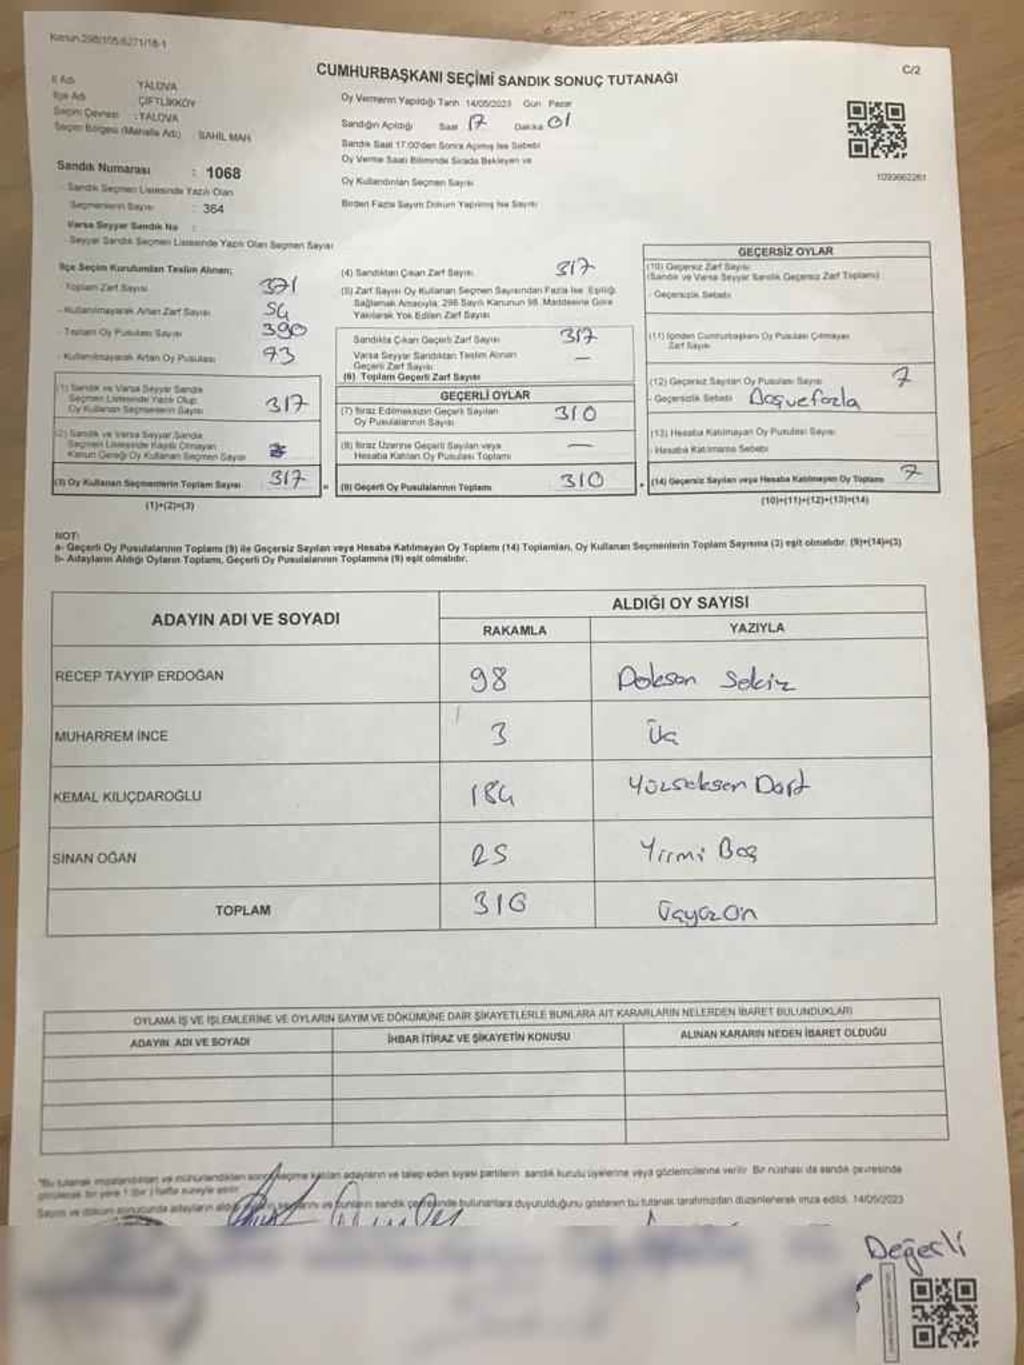 Kanun 298/105/6271/18-1
C/2
CUMHURBAŞKANI SEÇİMİ SANDIK SONUÇ TUTANAĞI
İl Adı YALOVA
İlçe Adı ÇİFTLİKKÖY
Seçim Çevresi : YALOVA
Seçim Bölgesi (Mahalle Adı) : SAHİL MAH
Oy Vermenin Yapıldığı Tarih 14/05/2023 Gün Pazar
Sandığın Açıldığı Saat 17 Dakika 01
Sandık Saat 17:00'den Sonra Açılmış İse Sebebi
Oy Verme Saati Bitiminde Sırada Bekleyen ve
Oy Kullandırılan Seçmen Sayısı
Birden Fazla Sayım Döküm Yapılmış İse Sayısı
1093662261
Sandık Numarası : 1068
- Sandık Seçmen Listesinde Yazılı Olan
Seçmenlerin Sayısı : 364
Varsa Seyyar Sandık No :
- Seyyar Sandık Seçmen Listesinde Yazılı Olan Seçmen Sayısı
İlçe Seçim Kurulundan Teslim Alınan;
Toplam Zarf Sayısı 371
- Kullanılmayarak Artan Zarf Sayısı 54
- Toplam Oy Pusulası Sayısı 390
- Kullanılmayarak Artan Oy Pusulası 73
(1) Sandık ve Varsa Seyyar Sandık
Seçmen Listesinde Yazılı Olup
Oy Kullanan Seçmenlerin Sayısı 317
(2) Sandık ve Varsa Seyyar Sandık
Seçmen Listesinde Kayıtlı Olmayan
Kanun Gereği Oy Kullanan Seçmen Sayısı
(3) Oy Kullanan Seçmenlerin Toplam Sayısı 317 =
(1)+(2)=(3)
(4) Sandıktan Çıkan Zarf Sayısı 317
(5) Zarf Sayısı Oy Kullanan Seçmen Sayısından Fazla İse, Eşitliği
Sağlamak Amacıyla, 298 Sayılı Kanunun 98. Maddesine Göre
Yakılarak Yok Edilen Zarf Sayısı
Sandıkta Çıkan Geçerli Zarf Sayısı 317
Varsa Seyyar Sandıktan Teslim Alınan
Geçerli Zarf Sayısı —
(6) Toplam Geçerli Zarf Sayısı
GEÇERLİ OYLAR
(7) İtiraz Edilmeksizin Geçerli Sayılan
Oy Pusulalarının Sayısı 310
(8) İtiraz Üzerine Geçerli Sayılan veya
Hesaba Katılan Oy Pusulası Toplamı —
(9) Geçerli Oy Pusulalarının Toplamı 310 +
GEÇERSİZ OYLAR
(10) Geçersiz Zarf Sayısı
(Sandık ve Varsa Seyyar Sandık Geçersiz Zarf Toplamı)
- Geçersizlik Sebebi
(11) İçinden Cumhurbaşkanı Oy Pusulası Çıkmayan
Zarf Sayısı
(12) Geçersiz Sayılan Oy Pusulası Sayısı 7
- Geçersizlik Sebebi Boşvefazla
(13) Hesaba Katılmayan Oy Pusulası Sayısı
- Hesaba Katılmama Sebebi
(14) Geçersiz Sayılan veya Hesaba Katılmayan Oy Toplamı 7
(10)+(11)+(12)+(13)=(14)
NOT:
a- Geçerli Oy Pusulalarının Toplamı (9) ile Geçersiz Sayılan veya Hesaba Katılmayan Oy Toplamı (14) Toplamları, Oy Kullanan Seçmenlerin Toplam Sayısına (3) eşit olmalıdır. (9)+(14)=(3)
b- Adayların Aldığı Oyların Toplamı, Geçerli Oy Pusulalarının Toplamına (9) eşit olmalıdır.
ADAYIN ADI VE SOYADI
ALDIĞI OY SAYISI
RAKAMLA YAZIYLA
RECEP TAYYİP ERDOĞAN 98 Doksan Sekiz
MUHARREM İNCE 3 Üç
KEMAL KILIÇDAROĞLU 184 Yüzseksen Dört
SİNAN OĞAN 25 Yirmi Beş
TOPLAM 310 Üçyüzon
OYLAMA İŞ VE İŞLEMLERİNE VE OYLARIN SAYIM VE DÖKÜMÜNE DAİR ŞİKAYETLERLE BUNLARA AİT KARARLARIN NELERDEN İBARET BULUNDUKLARI
ADAYIN ADI VE SOYADI İHBAR İTİRAZ VE ŞİKAYETİN KONUSU ALINAN KARARIN NEDEN İBARET OLDUĞU
*Bu tutanak imzalandıktan ve mühürlendikten sonra seçime katılan adayların ve talep eden siyasi partilerin sandık kurulu üyelerine veya gözlemcilerine verilir. Bir nüshası da sandık çevresinde
görülecek bir yere 1 (bir) hafta süreyle asılır.
Sayım ve döküm sonucunda adayların aldığı ve bunların sandık çevresinde bulunanlara duyurulduğunu gösteren bu tutanak tarafımızdan düzenlenerek imza edildi. 14/05/2023
Değerli